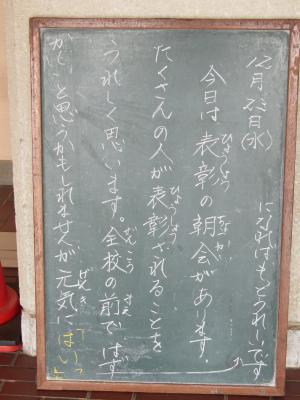 12月22日(水)
今日は表彰の朝会があります。
たくさんの人が表彰されることを
うれしく思います。全校の前ではず
かしいと思うかもしれませんが元気に「はいっ」
になればもとうれしいです